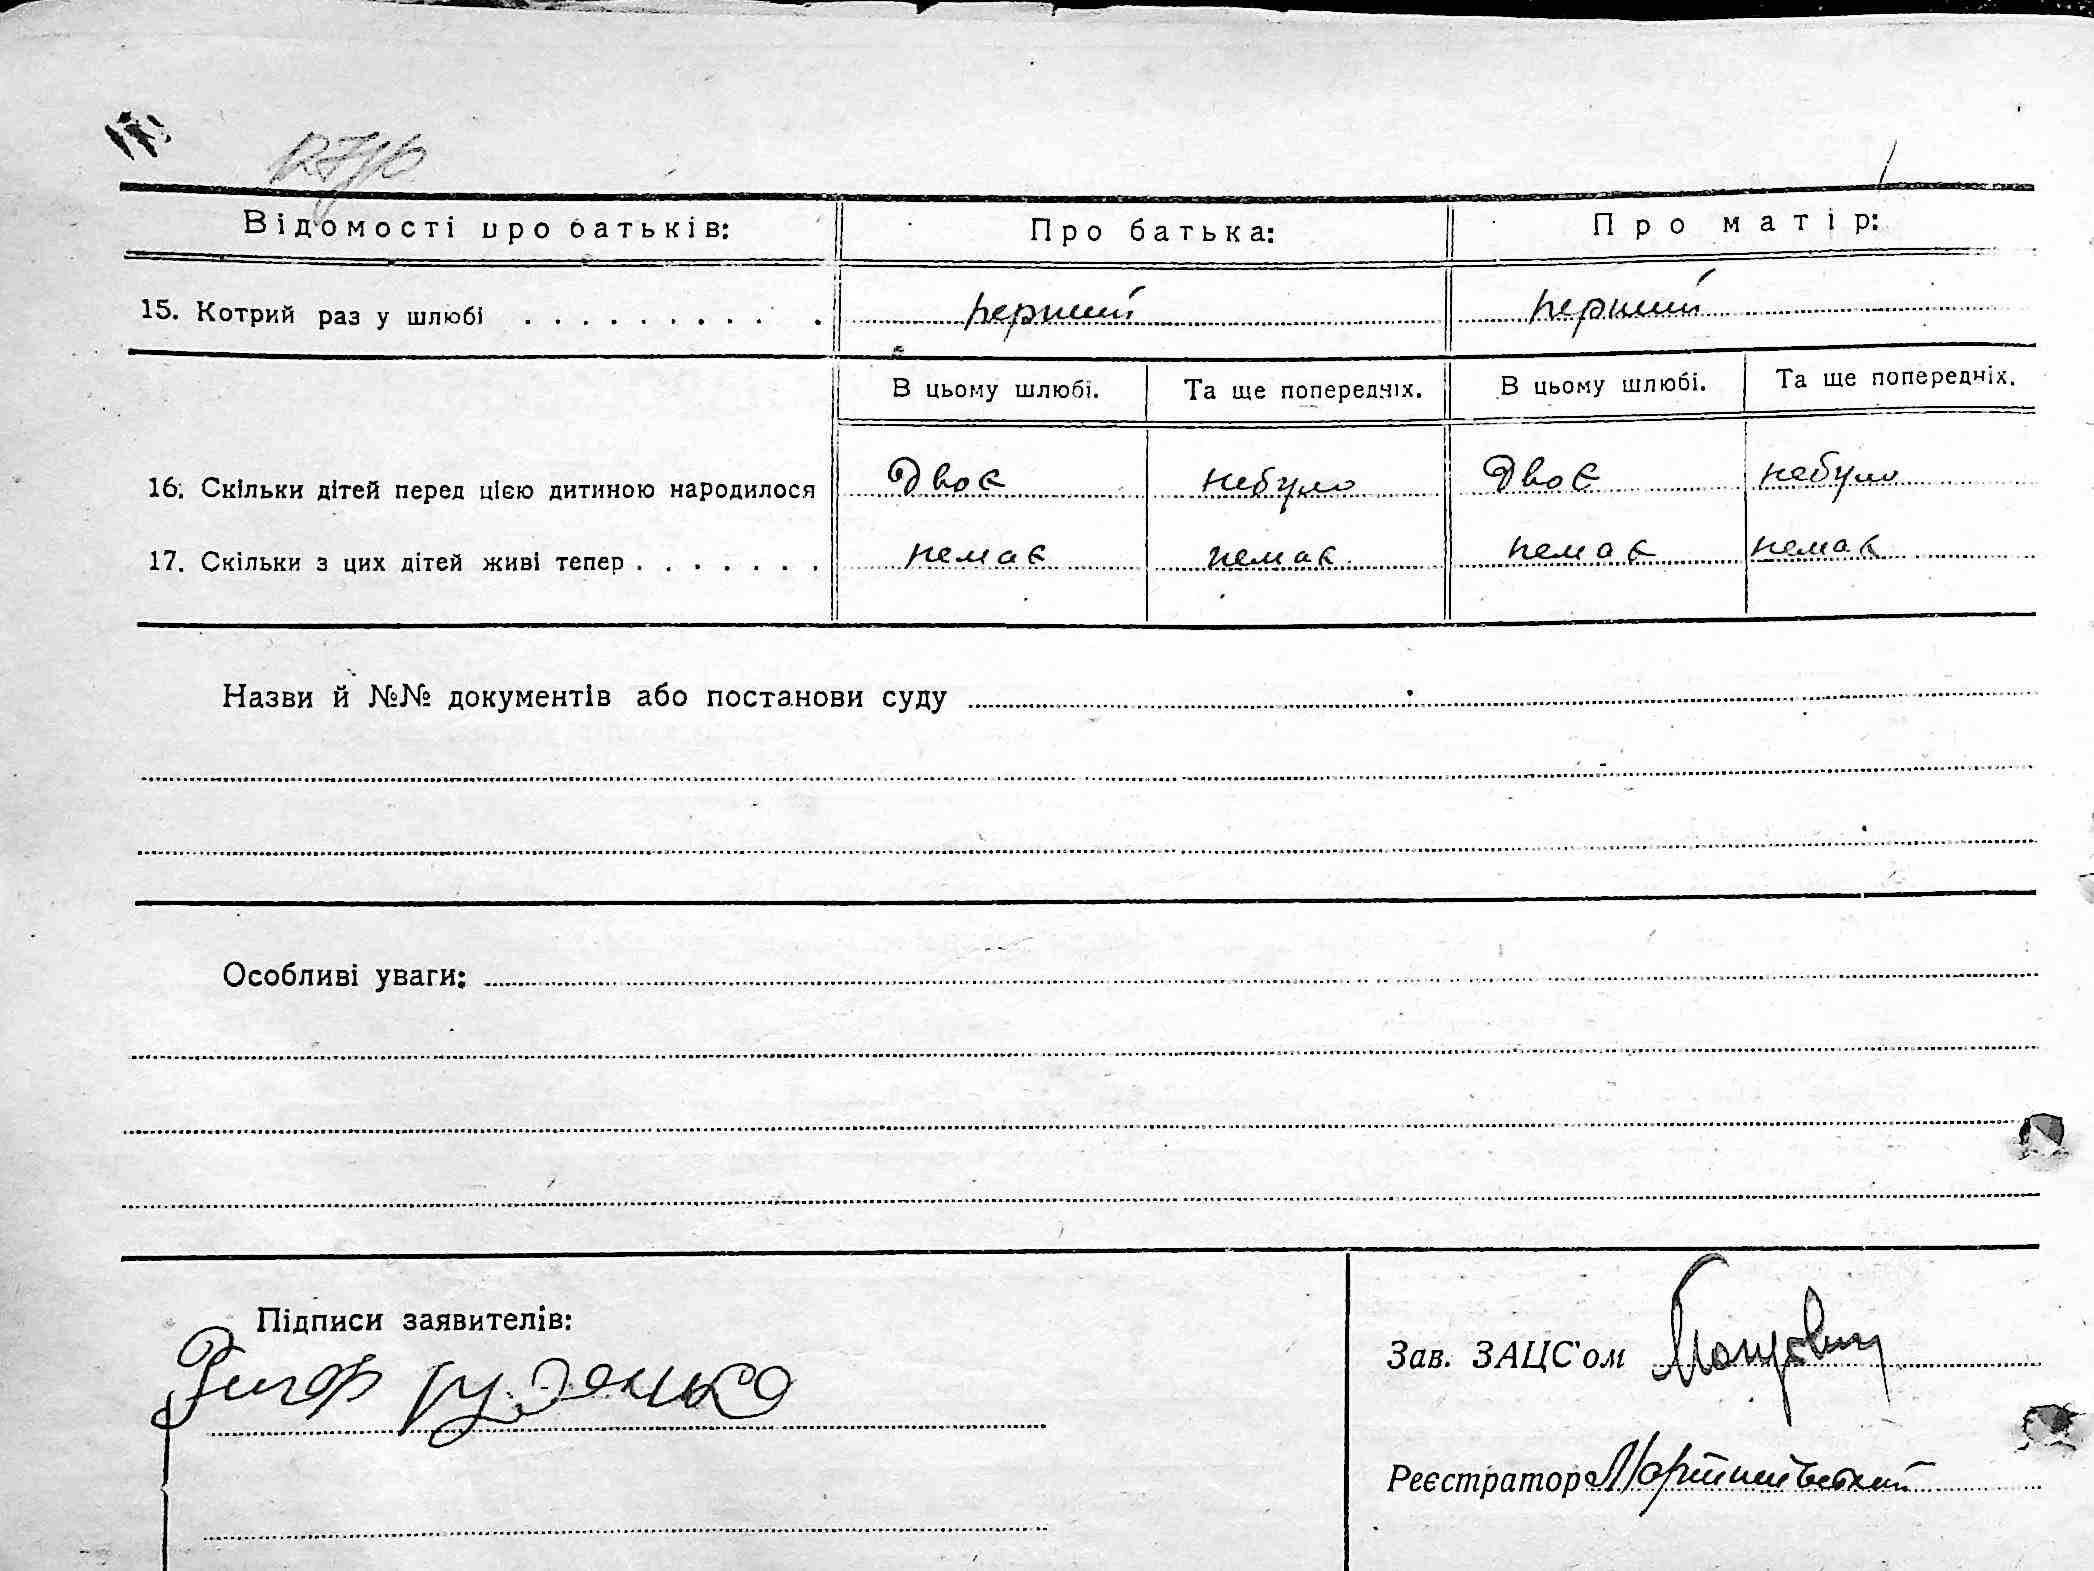 Відомості про батьків: Про батька: Про матір:
15. Котрий раз у шлюбі . . . . . . . . . . . перший перший
В цьому шлюбі. Та ще попередніх. В цьому шлюбі. Та ще попередніх.
16. Скільки дітей перед цією дитиною народилося Двоє небуло Двоє небуло
17. Скільки з цих дітей живі тепер . . . . . . . немає немає немає немає
Назви й №№ документів або постанови суду
Особливі уваги:
Підписи заявителів:
Зав. ЗАЦС'ом
Реєстратор